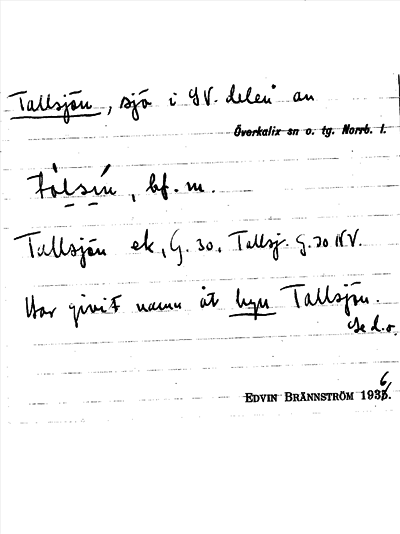 Tallsjön, sjö i SV. delen an
Överkalix sn o. tg. Norrb. l.
bf. m.
Tallsjön ek, G. 30, Tallsj. G. 30 NV.
Har givit namn åt byn Tallsjön.
Se d. o.
EDVIN BRÄNNSTRÖM 1936.